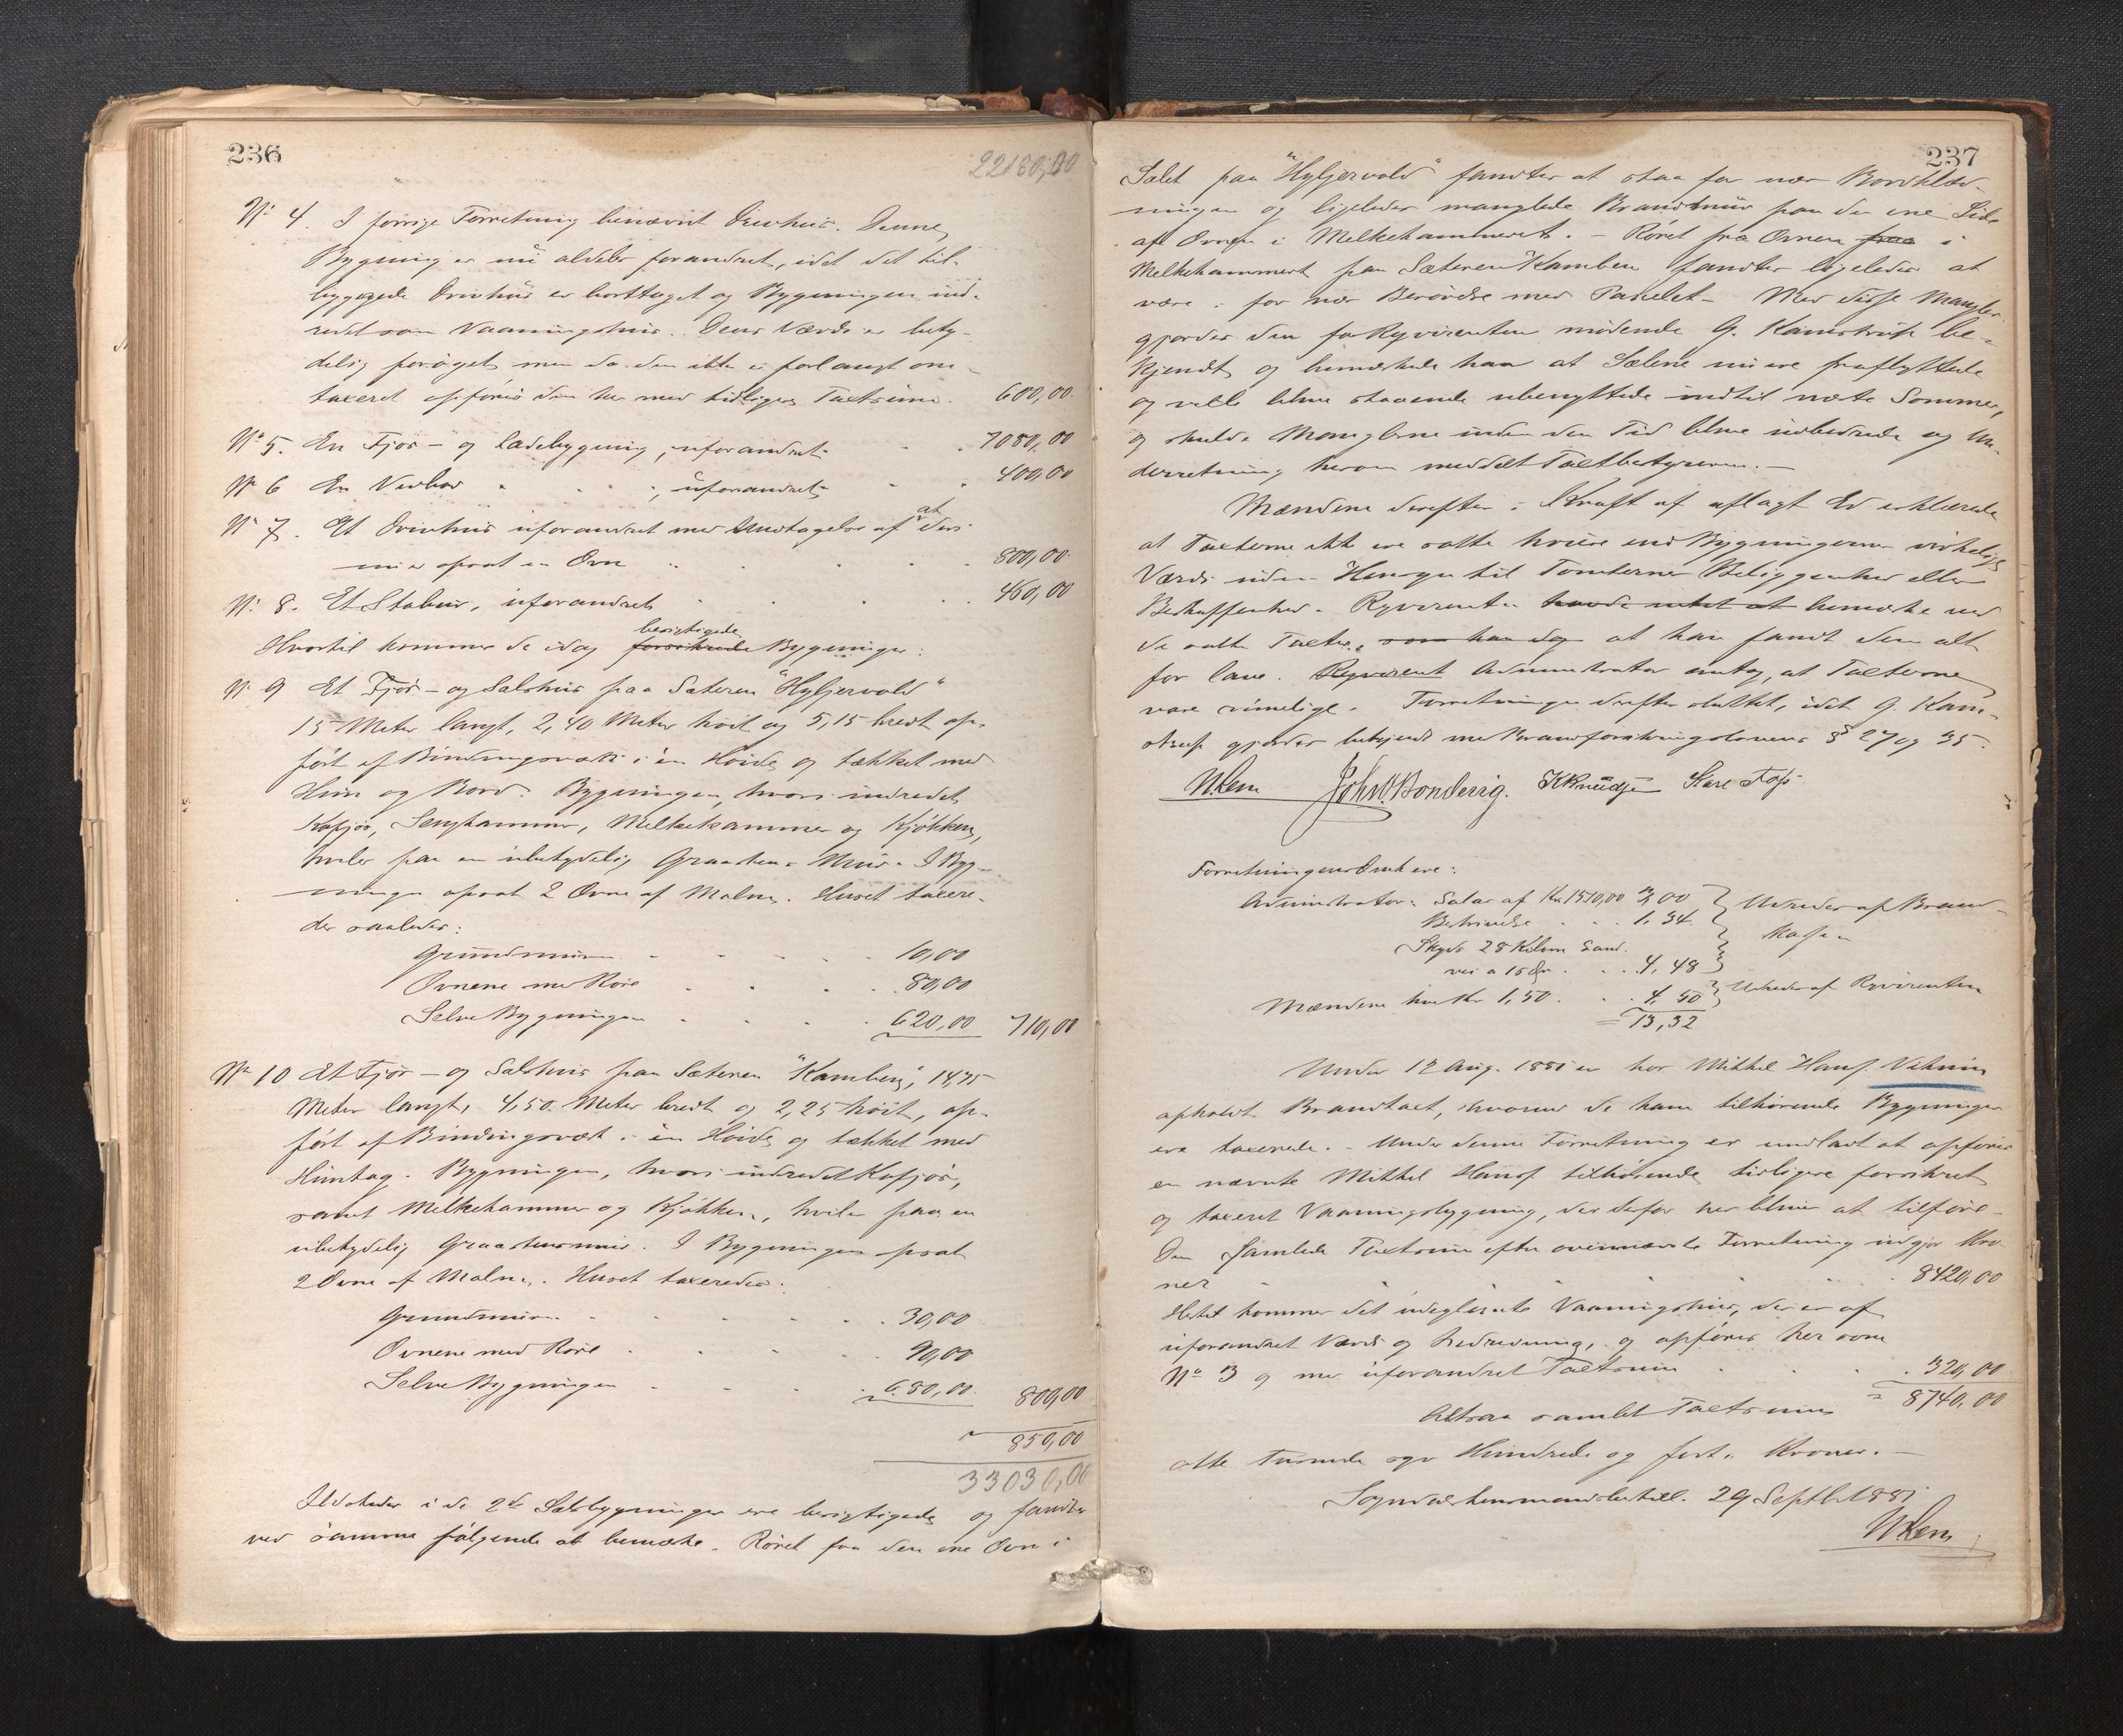 236
22180,00
No 4. I forrige Forretning benævnt Drivhus. Denne
Bygning er nu aldeles forandret, idet det til-
byggede Drivhus er borttaget og Bygningen ind-
redet som Vaaningshus. Dens Værdi er bety-
delig forøget men da den ikke er forlangt om-
taxeret opføres den her med tidligere Taxtsum. 600,00.
No 5. En Fjøs- og Ladebygning, uforandret 7080,00
No 6 En Vedbod , uforandret 400,00
at
No 7. Et Drivhus uforandret med Undtagelse af deri
nu er opsat en Ovn 800,00
No 8. Et Stabur, uforandret 460,00
besigtigede
Hvortil kommer de idag forsikrede Bygninger:
No 9 Et Fjøs- og Sælshus paa Sæteren "Hyljervold"
15 Meter langt, 2,40 Meter høit og 5,15 bredt op-
ført af Bindingsværk i en Høide og tækket med
Hun og Bord. Bygningen, hvori indredet
Kofjøs, Sengkammer, Melkekammer og Kjøkken,
hviler paa en ubetydelig Graastens Mur. I Byg-
ningen opsat 2 Ovne af Malm. Huset taxere-
des saaledes:
Grundmuren 10,00
Ovnene med Røre 80,00
Selve Bygningen 620,00 710,00
No 10 Et Fjøs- og Sælshus paa Sæteren "Kamben", 14,75
Meter langt, 4,50 Meter bredt og 2,25 høit, op-
ført af Bindingsværk i en Høide og tækket med
Huntag. Bygningen, hvori indredet Kofjøs,
samt Melkekammer og Kjøkken, hviler paa en
ubetydelig Graastensmur. I Bygningen opsat
2 Ovne af Malm. Huset taxeredes:
Grundmuren 30,00
Ovnene med Røre 90,00
Selve Bygningen 680,00 800,00
850,00
33030,00
Ildsteder i de 2de Sælsbygninger ere besigtigede og fandtes
ved samme følgende at bemærke. Røret fra den ene Ovn i
237
Sælet paa "Hyljervold" fandtes at staa for nær Bordklæd-
ningen og ligeledes manglede Brandmur paa den ene Side
af Ovnen i Melkekammeret. - Røret fra Ovnen fra i
Melkekammeret paa Sæteren Kamben fandtes ligeledes at
være i for nær Berørelse med Panelet - Med disse Mangler
gjordes den for Rqvirenten mødende G. Kamstrup be-
kjendt og bemærkede han at Sælene nu ere fraflyttede
og ville blive staaende ubenyttede indtil næste Sommer,
og skulde Manglerne inden den Tid blive udbedrede og Un-
derretning herom meddelt Taxtbestyreren. -
Mændene derefter i Kraft af aflagt Ed erklærede
at Taxterne ikke ere satte høiere end Bygningernes virkelige
Værdi uden Hensyn til Tomternes Beliggenhed eller
Beskaffenhed. Rqvirenten havde intet at bemærke ved
de satte Taxter, som han dog at han fandt dem alt
for lave. Rqvirent Administrator antog, at Taxterne
vare rimelige. Forretningen derefter sluttet, idet G. Kam-
strup gjordes bekjendt med Brandforsikringslovens § 27 og 35.
N. Lem John O. Bonderig. K Knudsen
Forretningens Omk. ere:
Administrator: Salar af Kr. 1510,00 3,00
1,34
Udredes af Brand-
kassen
Skyds 28 Kilom. Land-
vei a 16 Øre 4,48
Mændene hver Kr 1,50 4,50 Udredes af Rqvirenten
= 13,32
Under 12 Aug. 1881 er hos Mikkel Hans. Viknin
apholdt Brandtaxt, hvorved de ham tilhørende Bygninger
ere taxerede. - Under denne Forretning er undladt at opføres
en nævnte Mikkel Hans. tilhørende tidligere forsikret
og taxeret Vaaningsbygning, der derfor her bliver at tilføre.
Den samlede Taxtsum efter ovennævnte Forretning udgjør Kro-
ner 8420,00
Hertil kommer det udeglemte Vaaningshus, der er af
uforandret Værdi og Indredning, og opføres her som
No 3 og med uforandret Taxtsum 320,00
Altsaa samlet Taxtsum = 8740,00
otte Tusinde syv Hundrede og firti Kroner. -
29 Septbr 1881
N. Lem